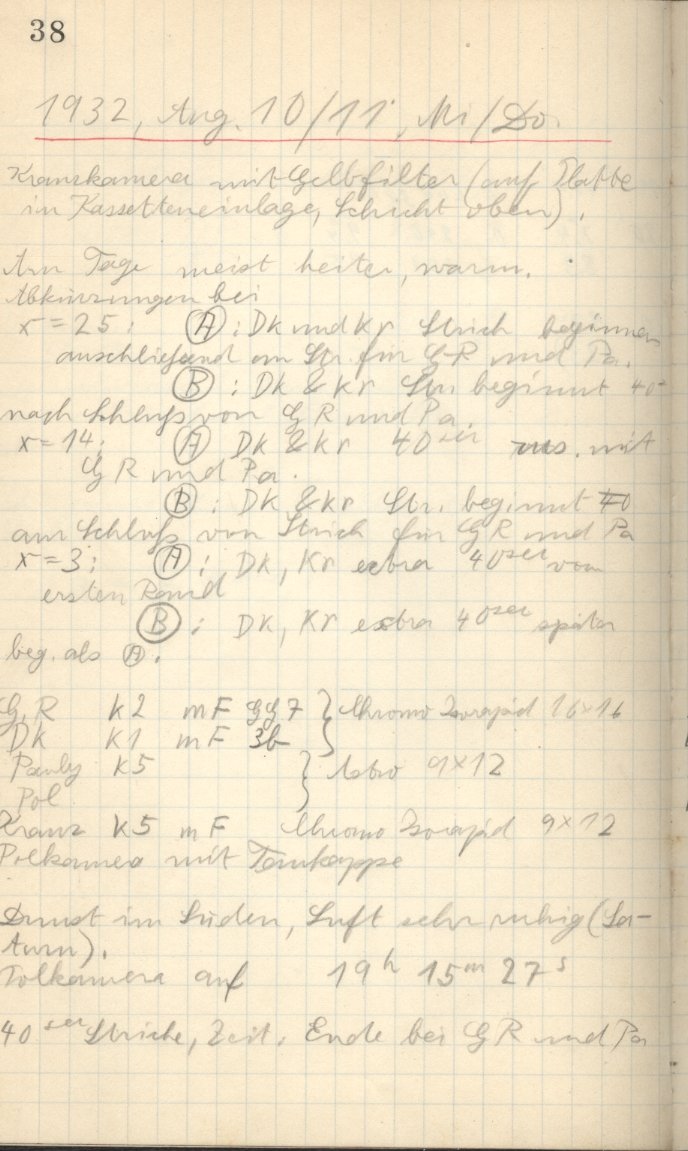 38
1932, Aug. 10/11, Mi/Do.
Kranzkamera mit Gelbfilter (auf Platte
in Kassetteneinlage, Schicht oben).
Am Tage meist heiter, warm.
Abkürzungen bei
x = 25: (A): Dk und Kr Strich beginnen
anschließend an Str. für GR und Pa.
(B): Dk & Kr Str. beginnt 40s
nach Schluß von GR und Pa.
x = 14: (A) Dk & Kr 40sec mit
GR und Pa.
(B): Dk & Kr Str. beginnt
am Schluß von Strich für GR und Pa
x = 3: (A): Dk, Kr extra 40sec vom
ersten Rand
(B): Dk, Kr extra 40sec später
beg. als (A).
GR K2 mF GG7 } Chromo Isorapid 16×16
Dk K1 mF 3b
Pauly K5 } Astro 9×12
Pol
Kranz K5 mF Chromo Isorapid 9×12
Polkamera mit Taukappe
Dunst im Süden, Luft sehr ruhig (Sa-
turn).
Polkamera auf 19h 15m 27s
40sec Striche, Zeit: Ende bei GR und Pa